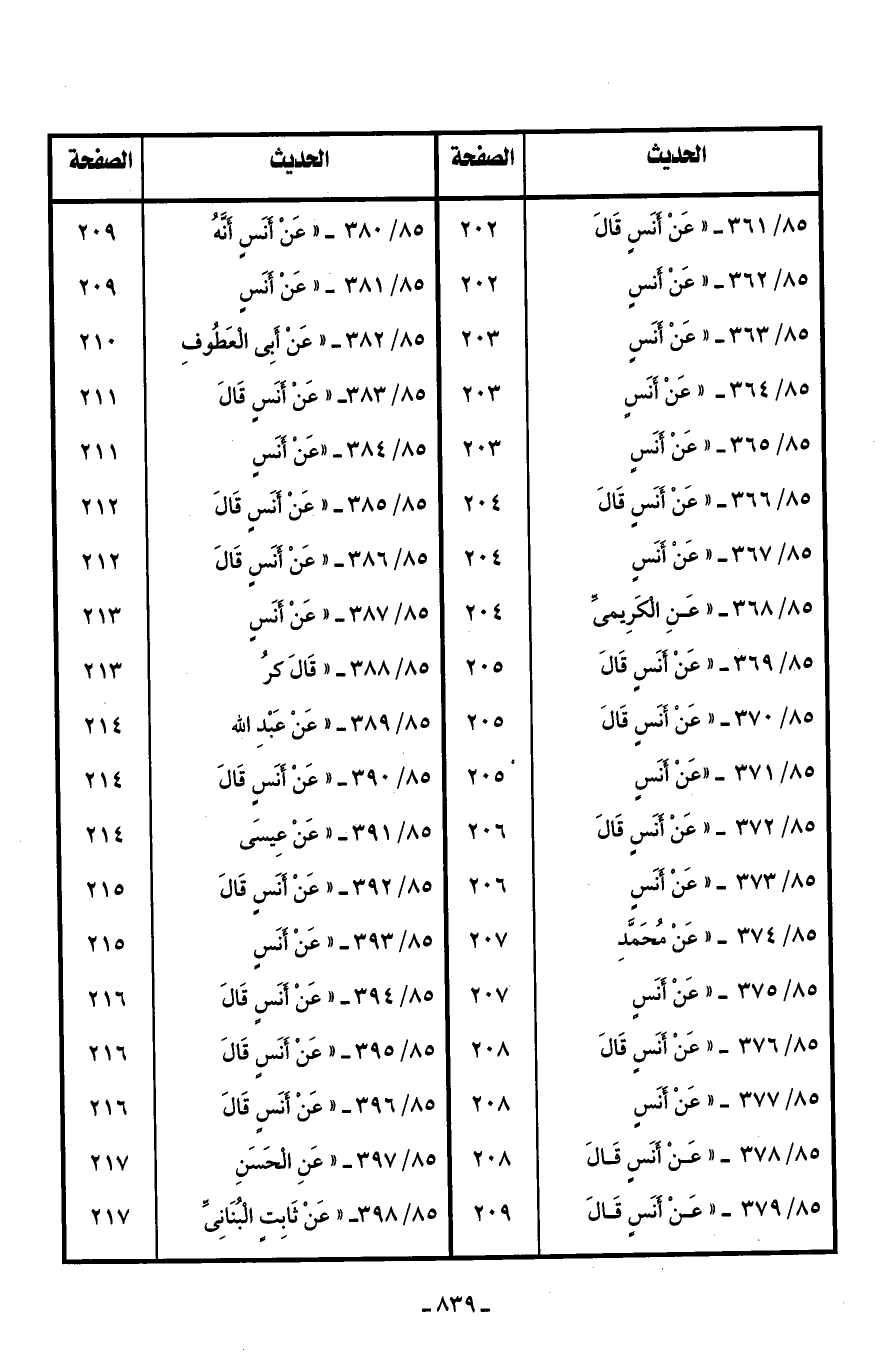 الحديث الصفحة الحديث الصفحة
٨٥/ ٣٦١ ـ « عَنْ أَنَسٍ قَالَ ٢٠٢ ٨٥/ ٣٨٠ ـ « عَنْ أَنَسٍ أَنَّهُ ٢٠٩
٨٥/ ٣٦٢ ـ « عَنْ أَنسٍ ٢٠٢ ٨٥/ ٣٨١ ـ « عَنْ أَنَسٍ ٢٠٩
٨٥/ ٣٦٣ ـ « عَنْ أَنَسٍ ٢٠٣ ٨٥/ ٣٨٢ ـ « عَنْ أَبِى الْعَطُوفِ ٢١٠
٨٥/ ٣٦٤ ـ « عَنْ أَنَسٍ ٢٠٣ ٨٥/ ٣٨٣ـ « عَنْ أَنَسٍ قَالَ ٢١١
٨٥/ ٣٦٥ ـ « عَنْ أَنَسٍ ٢٠٣ ٨٥/ ٣٨٤ ـ «عَنْ أَنَسٍ ٢١١
٨٥/ ٣٦٦ ـ « عَنْ أَنَسٍ قَالَ ٢٠٤ ٨٥/ ٣٨٥ ـ « عَنْ أَنَسٍ قَالَ ٢١٢
٨٥/ ٣٦٧ ـ « عَنْ أَنَسٍ ٢٠٤ ٨٥/ ٣٨٦ ـ « عَنْ أَنَسٍ قَالَ ٢١٢
٨٥/ ٣٦٨ ـ « عَـنِ الْكَرِيمىِّ ٢٠٤ ٨٥/ ٣٨٧ ـ « عَنْ أَنَسٍ ٢١٣
٨٥/ ٣٦٩ ـ « عَنْ أَنَسٍ قَالَ ٢٠٥ ٨٥/ ٣٨٨ ـ « قَالَ كرُ ٢١٣
٨٥/ ٣٧٠ ـ « عَنْ أَنَسٍ قَالَ ٢٠٥ ٨٥/ ٣٨٩ ـ « عَنْ عَبْدِ الله ٢١٤
٨٥/ ٣٧١ ـ «عَنْ أَنَسٍ ٢٠٥ ٨٥/ ٣٩٠ ـ « عَنْ أَنَسٍ قَالَ ٢١٤
٨٥/ ٣٧٢ ـ « عَنْ أَنَسٍ قَالَ ٢٠٦ ٨٥/ ٣٩١ ـ « عَنْ عِيسَى ٢١٤
٨٥/ ٣٧٣ ـ « عَنْ أَنَسٍ ٢٠٦ ٨٥/ ٣٩٢ ـ « عَنْ أَنَسٍ قَالَ ٢١٥
٨٥/ ٣٧٤ ـ « عَنْ مُحَمَّدِ ٢٠٧ ٨٥/ ٣٩٣ ـ « عَنْ أَنَسٍ ٢١٥
٨٥/ ٣٧٥ ـ « عَنْ أَنَسٍ ٢٠٧ ٨٥/ ٣٩٤ ـ « عَنْ أَنَسٍ قَالَ ٢١٦
٨٥/ ٣٧٦ ـ « عَنْ أَنَسٍ قَالَ ٢٠٨ ٨٥/ ٣٩٥ ـ « عَنْ أَنَسٍ قَالَ ٢١٦
٨٥/ ٣٧٧ ـ « عَنْ أَنَسٍ ٢٠٨ ٨٥/ ٣٩٦ ـ « عَنْ أَنَسٍ قَالَ ٢١٦
٨٥/ ٣٧٨ ـ « عَـنْ أَنَسٍ قَـالَ ٢٠٨ ٨٥/ ٣٩٧ ـ « عَنِ الْحَسَنِ ٢١٧
٨٥/ ٣٧٩ ـ « عَـنْ أَنَسٍ قَـالَ ٢٠٩ ٨٥/ ٣٩٨ـ « عَنْ ثَابِتٍ الْبُنَانِىِّ ٢١٧
ـ ٨٣٩ ـ